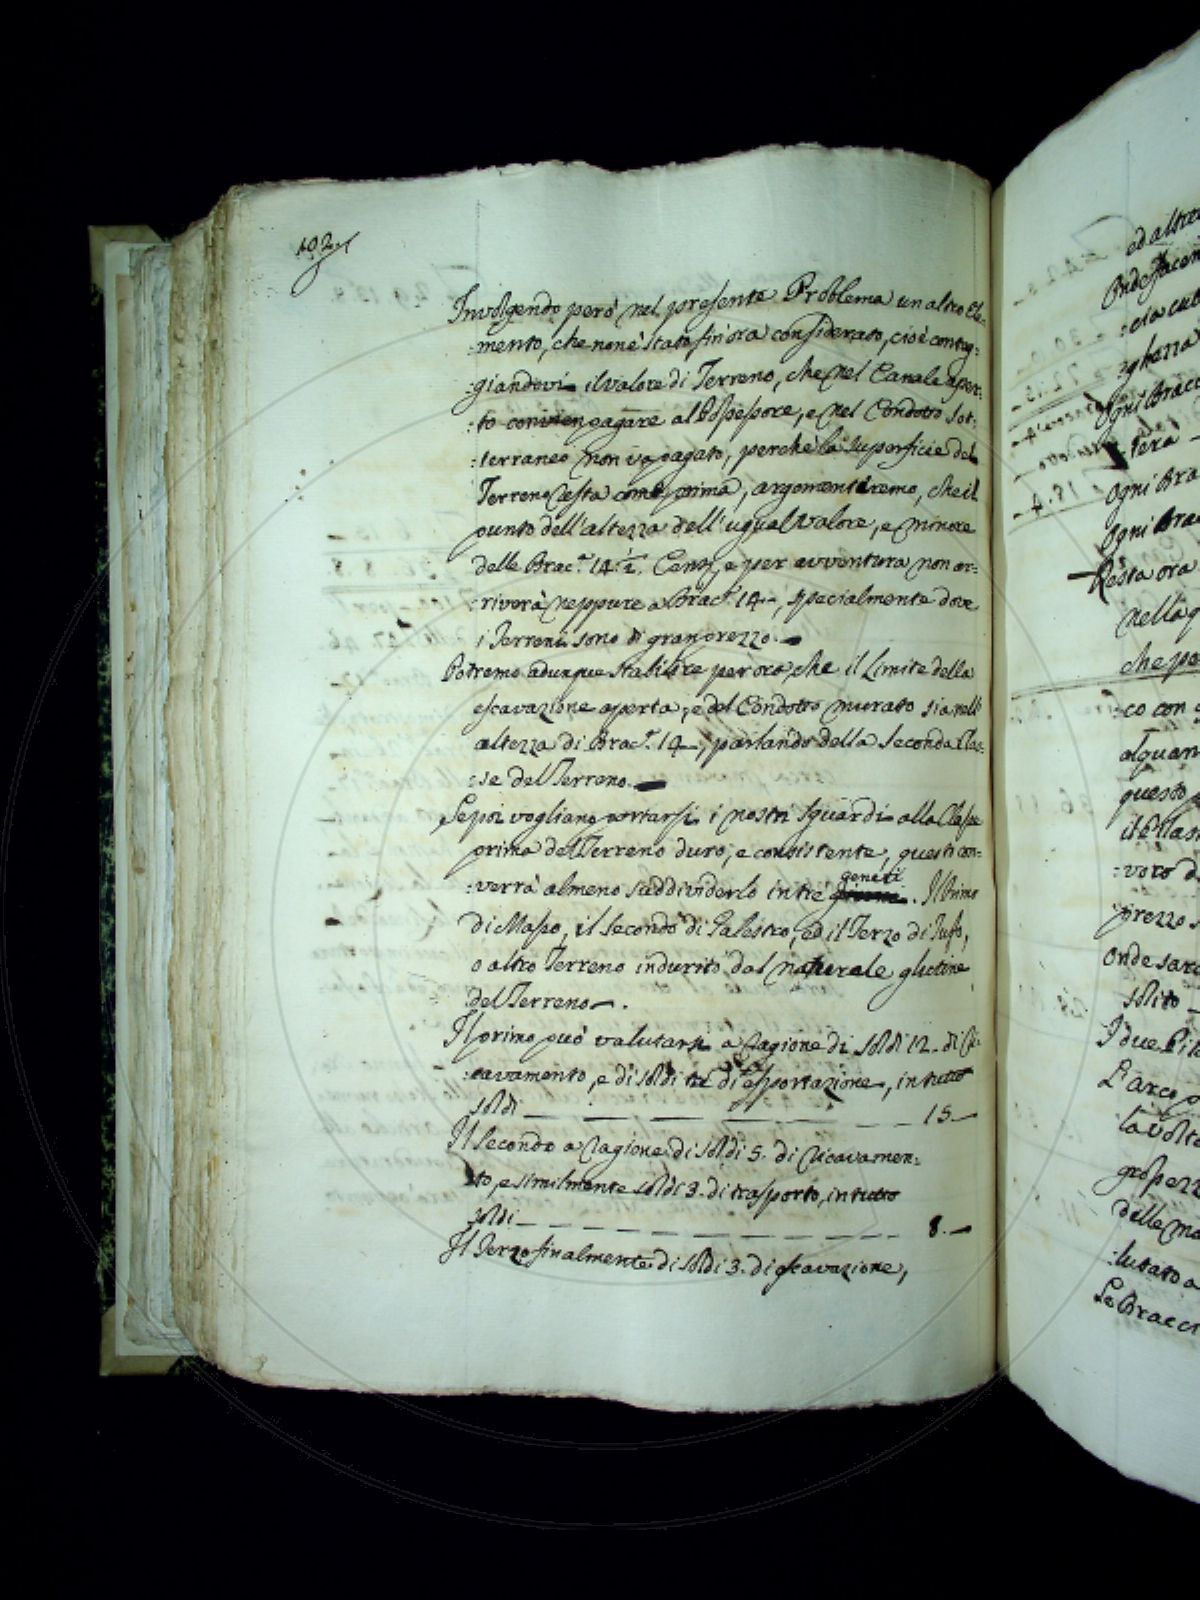 192
Involgendo però nel presente Problema un altro Ele:
:mento, che non è stato fin'ora considerato, cioè conteg:
:giandovi il valore di Terreno, che nel Canale aper:
:to convien pagare al Possessore, e nel Condotto Sot:
:terraneo non va pagato, perchè la Superficie del
Terreno resta come prima, argomenteremo, che il
punto dell'altezza dell'ugual valore, e minore
delle Brac.ᵃ 14 ½ Cens, e per avventura non ar:
:riverà neppure a Brac.ᵃ 14 _, specialmente dove
i Terreni sono di gran prezzo. _
Potremo adunque stabilire per ora, che il Limite della
escavazione aperta, e del Condotto murato sia nell'
altezza di Brac.ᵃ 14 _, parlando della Seconda Clas:
:se del Terreno. _
Se poi vogliano portarsi i nostri sguardi alla Classe
prima del Terreno duro, e consistente, questi con:
:verrà almeno suddividerlo in trè generi. Il Primo
di Masso, il Secondo di Galestro, ed il Terzo di Tufo,
o altro Terreno indurito dal naturale glutine
del Terreno _ .
Il primo può valutarsi a ragione di soldi 12. di Ca:
:cavamento, e di soldi trè di esportazione, in tutto
soldi _ _ _ _ _ 15. _
Il Secondo a ragione di soldi 5. di cavamen:
:to, e similmente soldi 3. di trasporto, in tutto
soldi _ _ _ _ _ 8. _
Il Terzo finalmente di soldi 3. di escavazione,
ed altre
:cia cub
:ghezza
Ogni Bracc
:tera _
Ogni Bra
Ogni Brac
Resta ora
nella q
che pe
:co con
alquan
questo
:voro d
prezzo
onde sarà
solito _
I due Pil
L'arco
la volta
grossezz
delle mu
:lutato a
Le Bracci